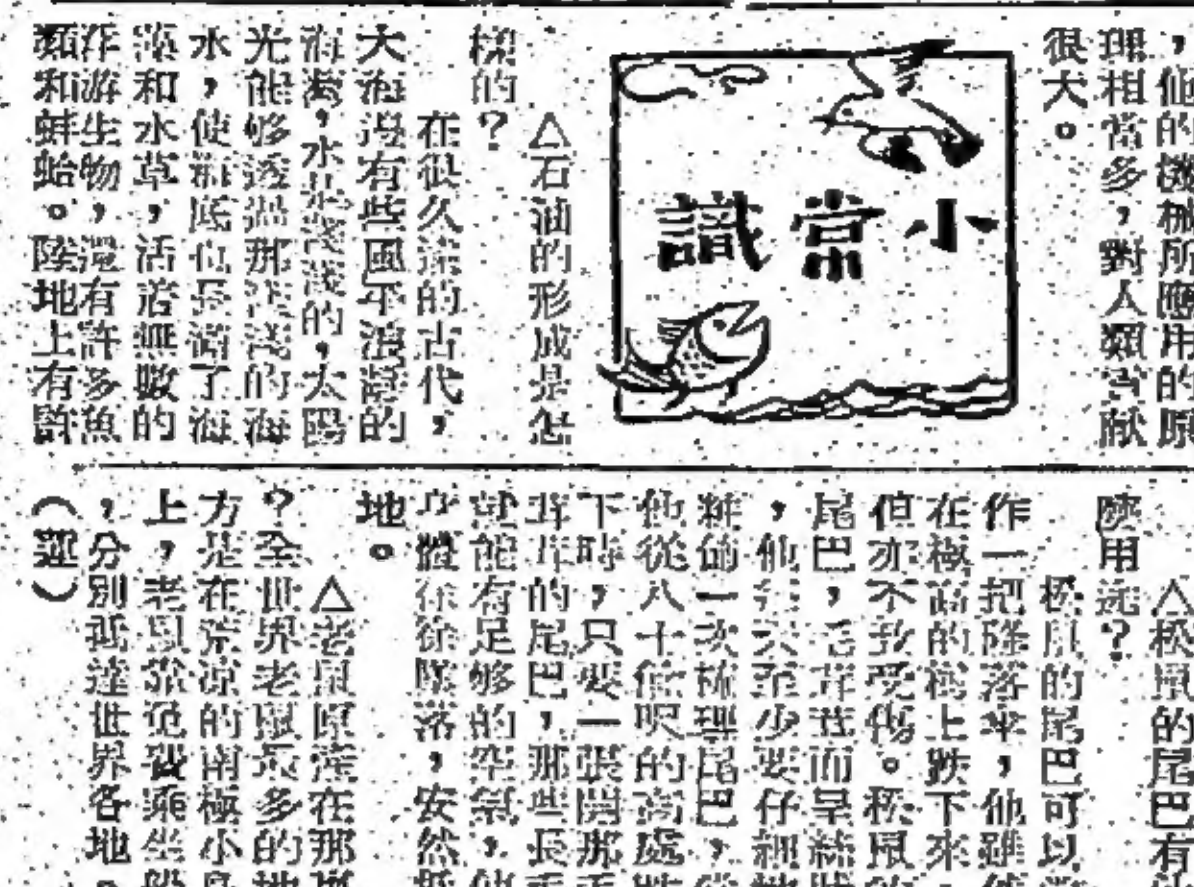 ，他的機械所應用的原
理相當多，對人類貢献
很大。
小常識
△石油的形成是怎
樣的？
在很久遠的古代，
大海邊有些風平浪靜的
海灣，水是淺淺的，太陽
光能够透過那淺淺的海
水，使海底也長滿了海
藻和水草，活着無數的
浮游生物，還有許多魚
類和蚌蛤。陸地上有許
△松鼠的尾巴有
用途？
松鼠的尾巴可以
作一把降落傘，他雖
在極高的樹上跌下來
但亦不致受傷。松鼠
尾巴，毛茸茸而呈
，他每天至少要仔細
一次梳理尾巴，
他從八十餘呎的高處
下時，只要一張開那
茸茸的尾巴，那些長
就能有足够的空氣，
身體徐徐墜落，安然
地。
△老鼠原產在那
？全世界老鼠最多的地
方是在荒凉的南極小島
上，老鼠常免費乘坐船
，分別抵達世界各地。
（運）